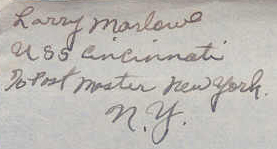 Larry Marlowe
USS Cincinnati
℅ Post Master New York.
N.Y.